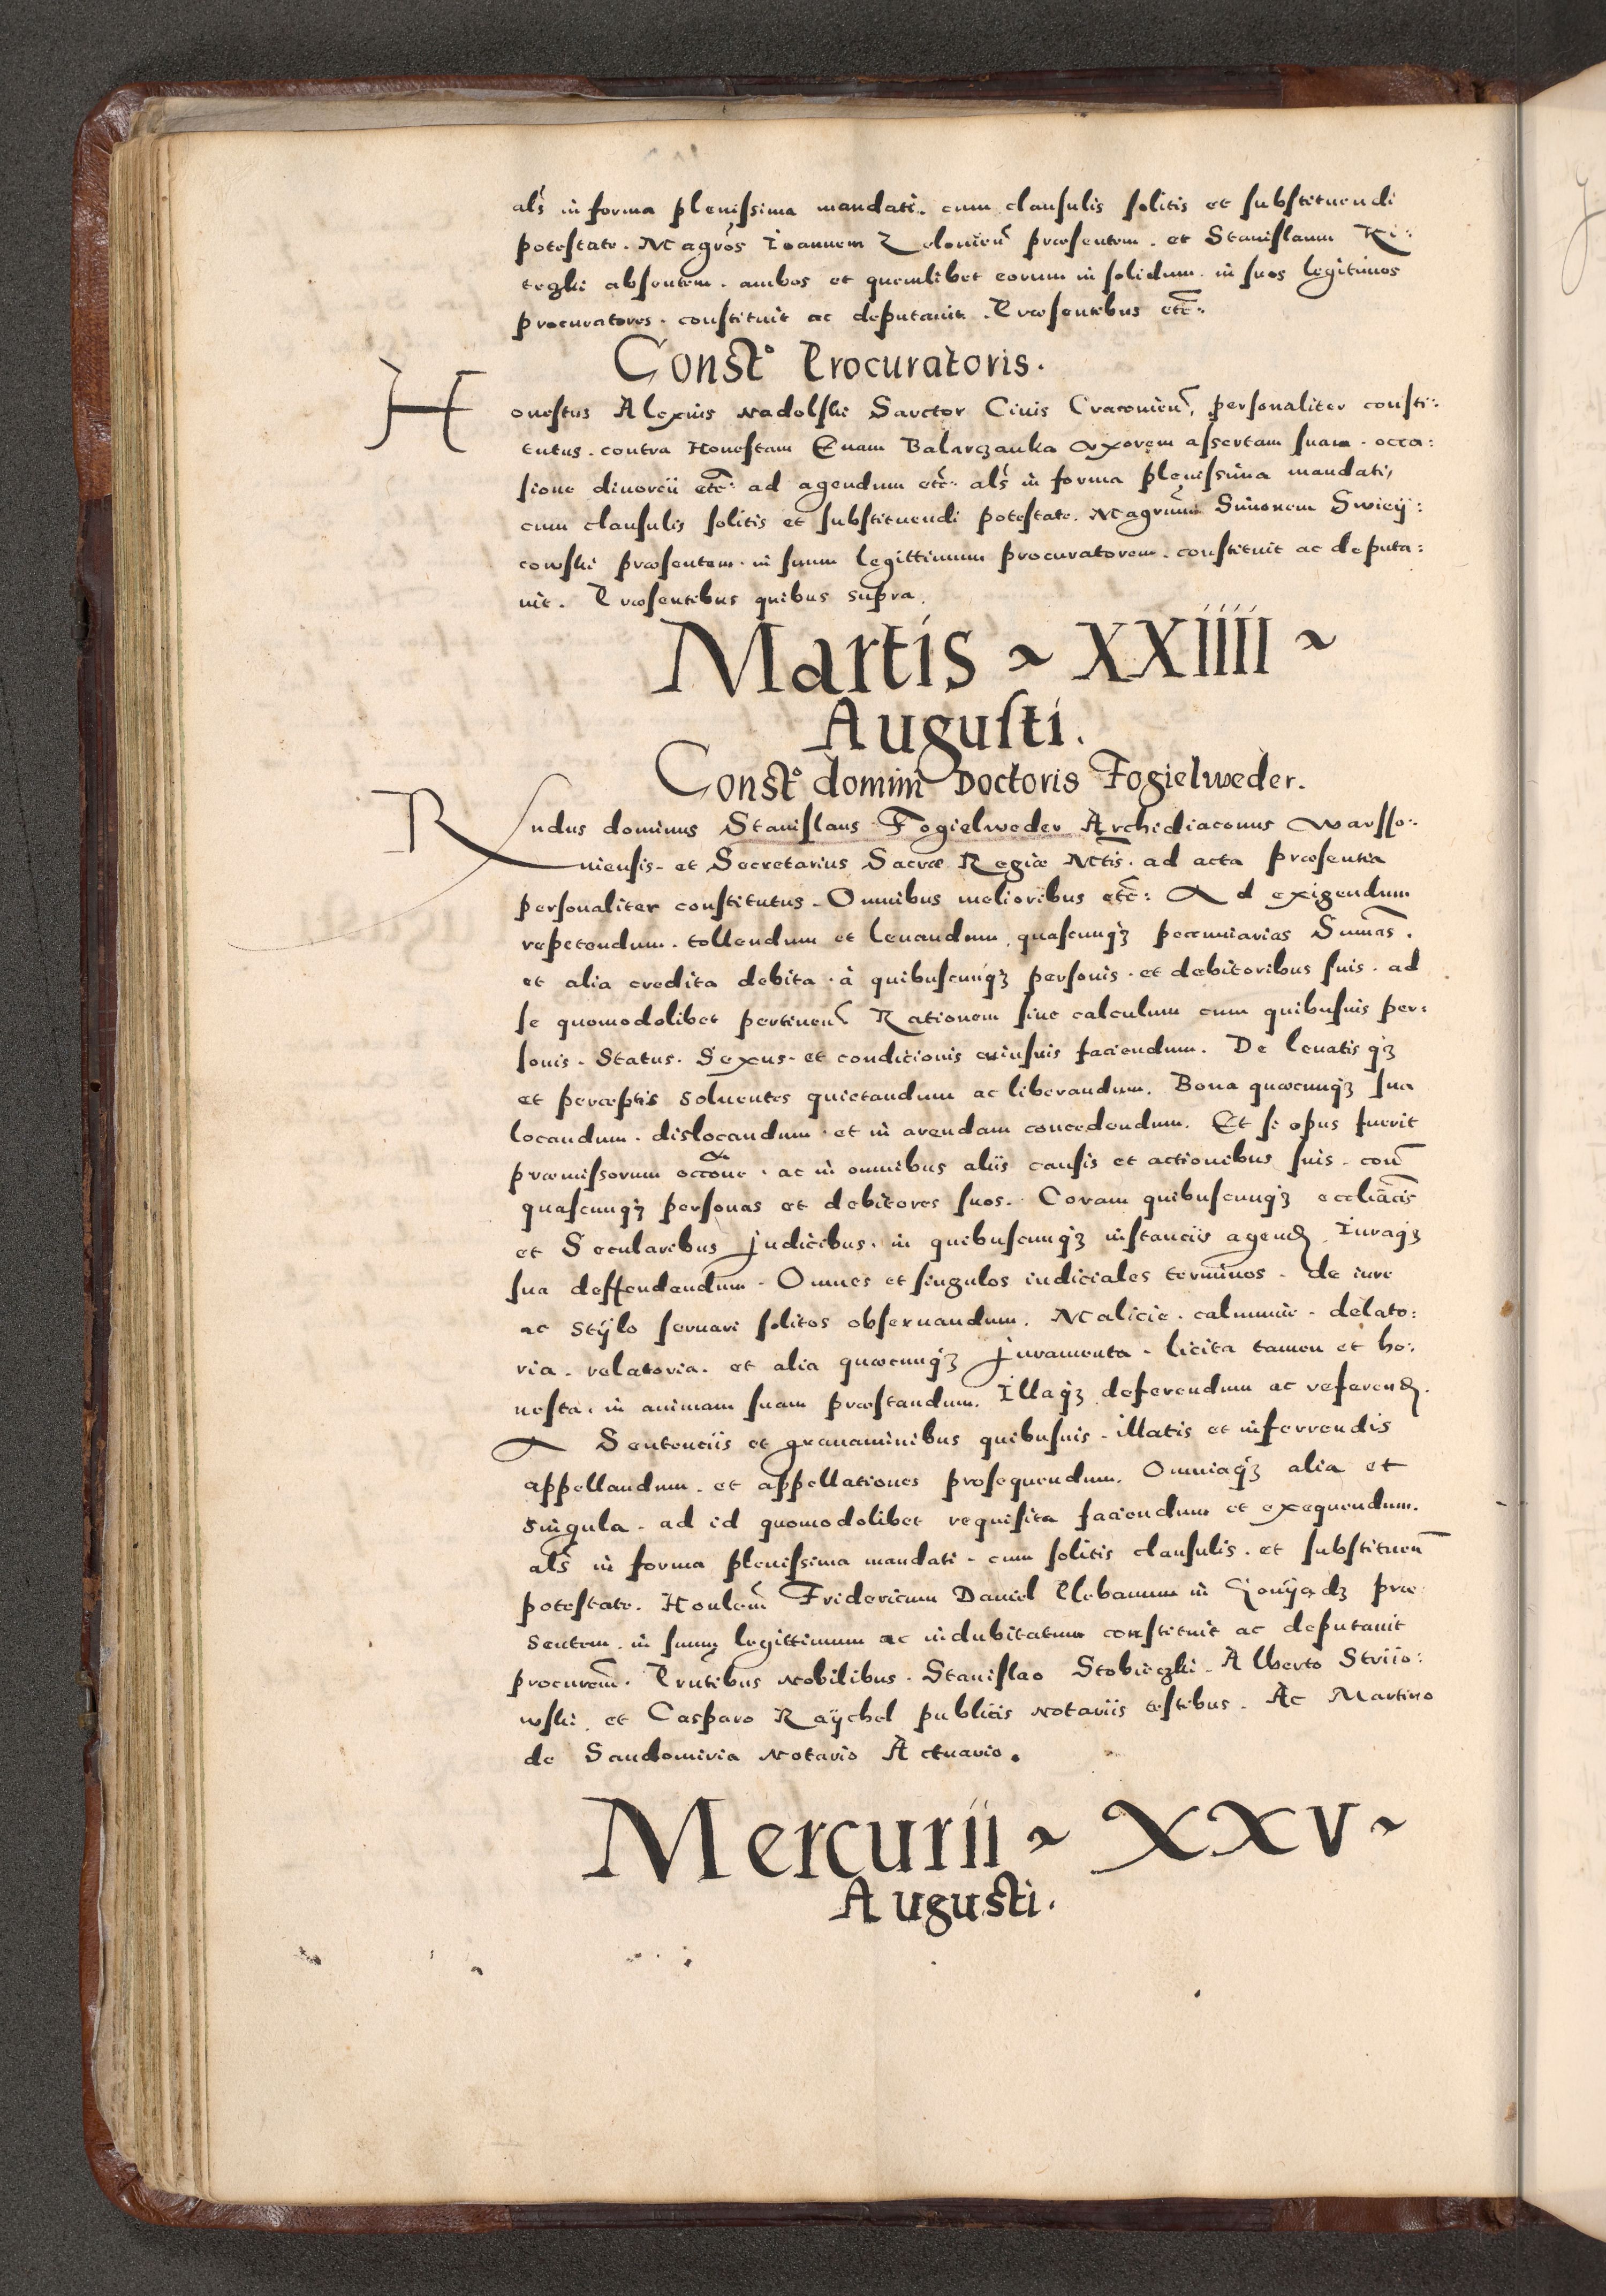 als̃ in forma plenissima mandati. cum clausulis solitis et substituendi
potestate. Magr̃os Ioannem Zelonien̄ præsentem. et Stanislaum Ri:
tezki absentem. ambos et quemlibet eorum in solidum. in suos legitimos
procuratores. constituit ac deputauit. Præsentibus etc̃:
Const.° Procuratoris.
Honestus Alexius Nadolski Sarctor Ciuis Cracouien̄, personaliter consti:
tutus. contra Honestam Euam Balarczanka Uxorem assertam suam. occa:
sione diuorcii etc̃: ad agendum etc̃: als̃ in forma plenissima mandati,
cum clausulis solitis et substituendi potestate. Magrum̃ Simonem Swieÿ:
cowski præsentem. in suum legittimum procuratorem. constituit ac deputa:
uit. Præsentibus quibus supra.
Martis ~ XXIIII ~
Augusti.
Const.° domini Doctoris Fogielweder.
Rndus dominus Stanislaus Fogielweder Archidiaconus Warsso:
niensis. et Secretarius Sacræ Regiæ Mtis. ad acta præsentia
personaliter constitutus. Omnibus melioribus etc̃: Ad exigendum
repetendum. tollendum et leuandum quascunq̃ʒ pecuniarias Sum̃as.
et alia credita debita. à quibuscunq̃ʒ personis. et debitoribus suis. ad
se quomodolibet pertinen̄ Rationem siue calculum cum quibusuis per:
sonis. Status. Sexus. et condicionis cuiusuis faciendum. De leuatis q̃ʒ
et perceptis soluentes quietandum ac liberandum. Bona quæcunq̃ʒ sua
locandum. dislocandum. et in arendam concedendum. Et si opus fuerit
præmissorum occ̃one. ac in omnibus aliis causis et actionibus suis. con̄
quascunq̃ʒ personas et debitores suos. Coram quibuscunq̃ʒ eccliãcis
et Secularibus Judicibus. in quibuscunq̃ʒ instanciis agend̃. Iuraq̃ʒ
sua deffendendum. Omnes et singulos iudiciales terminos. de iure
ac stÿlo seruari solitos obseruandum. Malicie. calumnie. delato:
ria. relatoria. et alia quæcunq̃ʒ Juramenta. licita tamen et ho:
nesta. in animam suam præstandum. Illaq̃ʒ deferendum ac referend̃.
A Sentenciis et grauaminibus quibusuis. illatis et inferrendis
appellandum. et appellationes prosequendum. Omniaq̃ʒ alia et
singula. ad id quomodolibet requisita faciendum et exequendum.
als̃ in forma plenissima mandati. cum solitis clausulis. et substituen̄
potestate. Honlem̃ Fridericum Daniel Plebanum in præ
sentem. in suum legittimum ac indubitatum constituit ac deputauit
procurem̃. Prntibus nobilibus. Stanislao Stobieczki. Alberto Striio:
wski. et Casparo Raÿchel publicis notariis testibus. Ac Martino
de Sandomiria Notario Actuario.
Mercurii ~ XXV ~
Augusti.